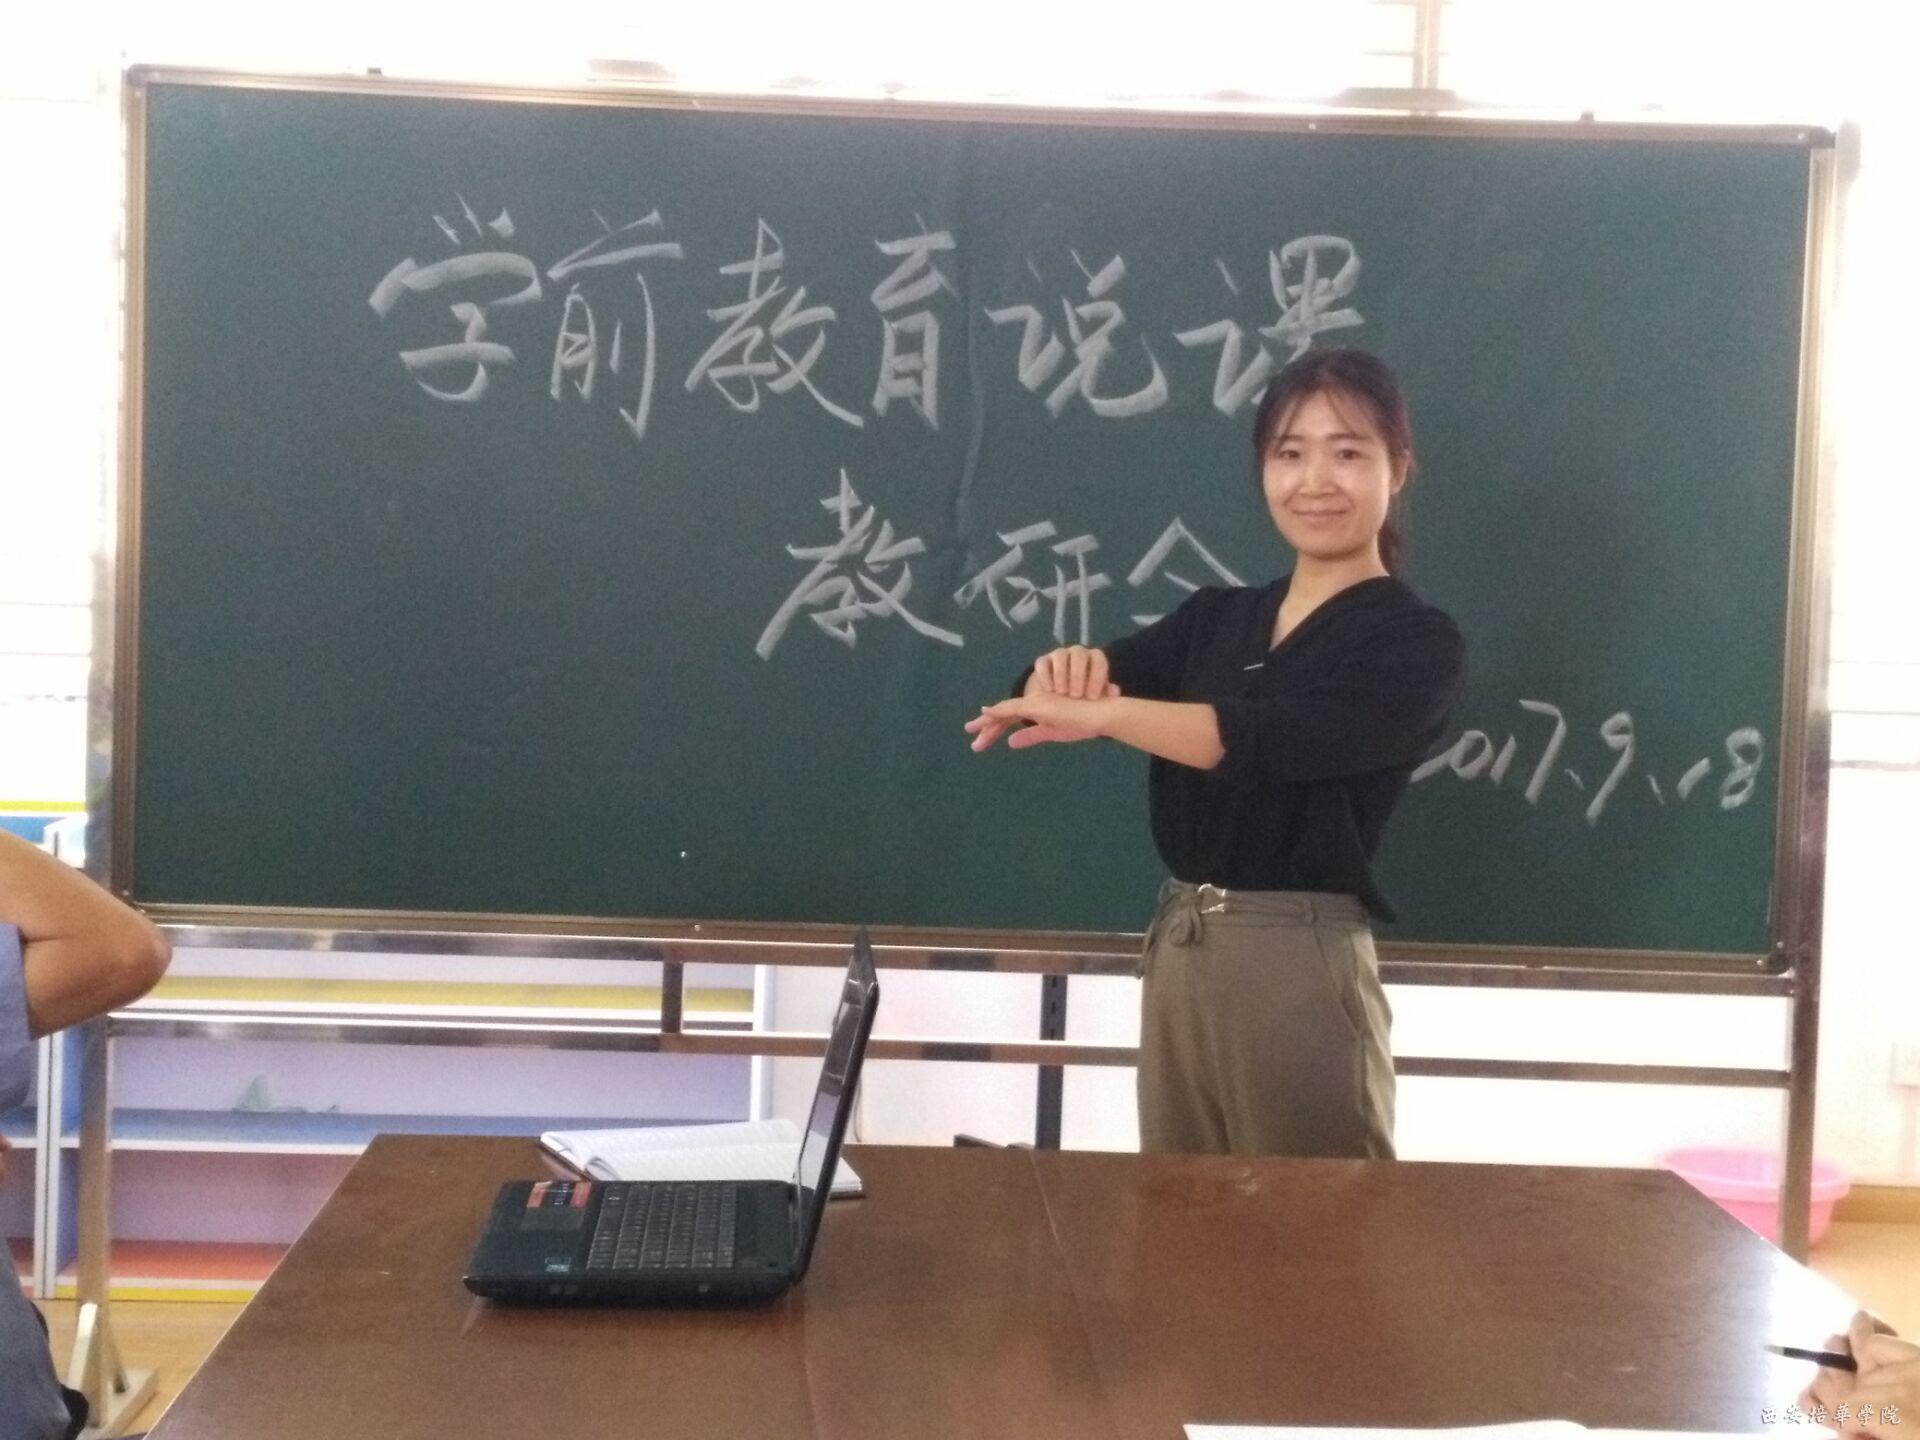 学前教育说课
教研会
2017.9.18
西安培華学院